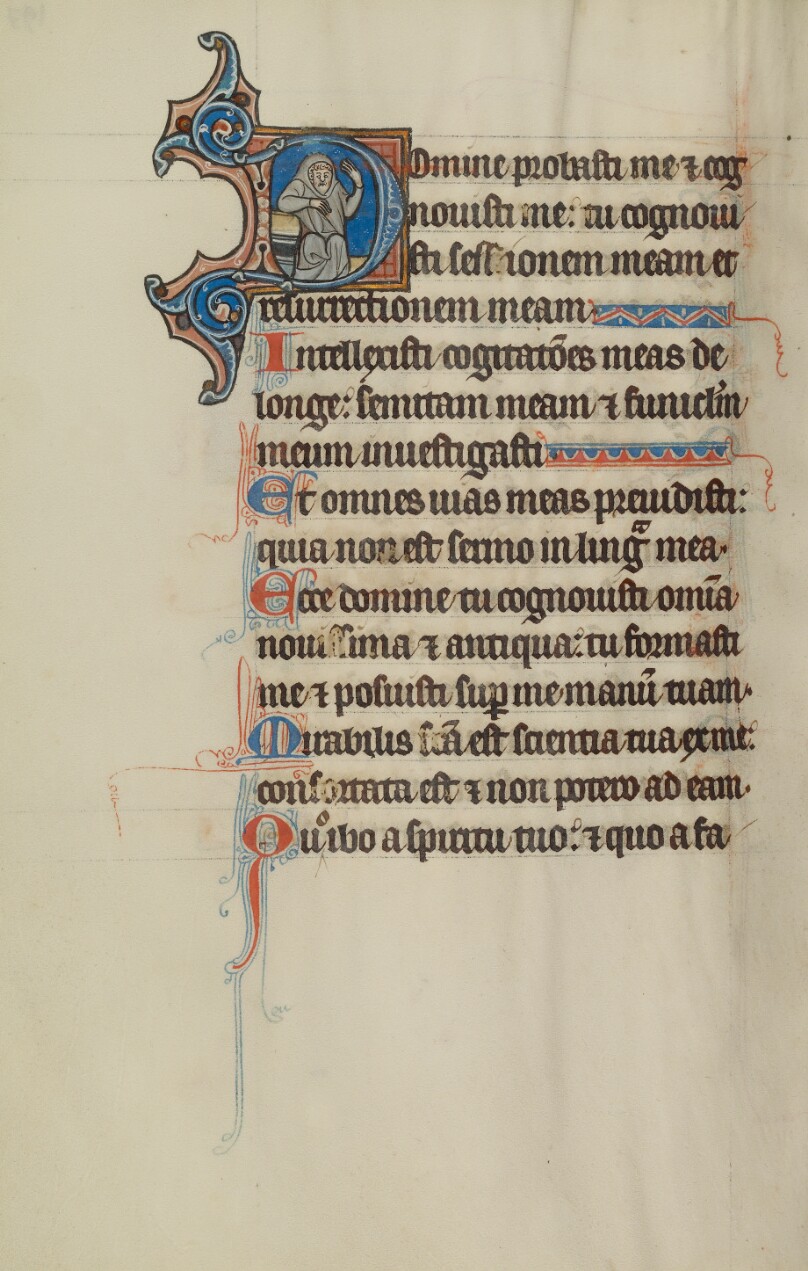 Domine probasti me ⁊ cog
nouisti me: tu cognoui
sti sessionem meam et
resurrectionem meam
Intellexisti cogitatōes meas de
longe: semitam meam ⁊ funiclm̄
meum inuestigasti
Et omnes uias meas preuidisti:
quia non est sermo in linga mea.
Ecce domine tu cognouisti omīa
nouissima ⁊ antiqua: tu formasti
me ⁊ posuisti suꝑ me manū tuam.
Mirabilis fcā est scientia tua ex me:
confortata est ⁊ non potero ad eam.
Quo ibo a spiritu tuo: ⁊ quo a fa